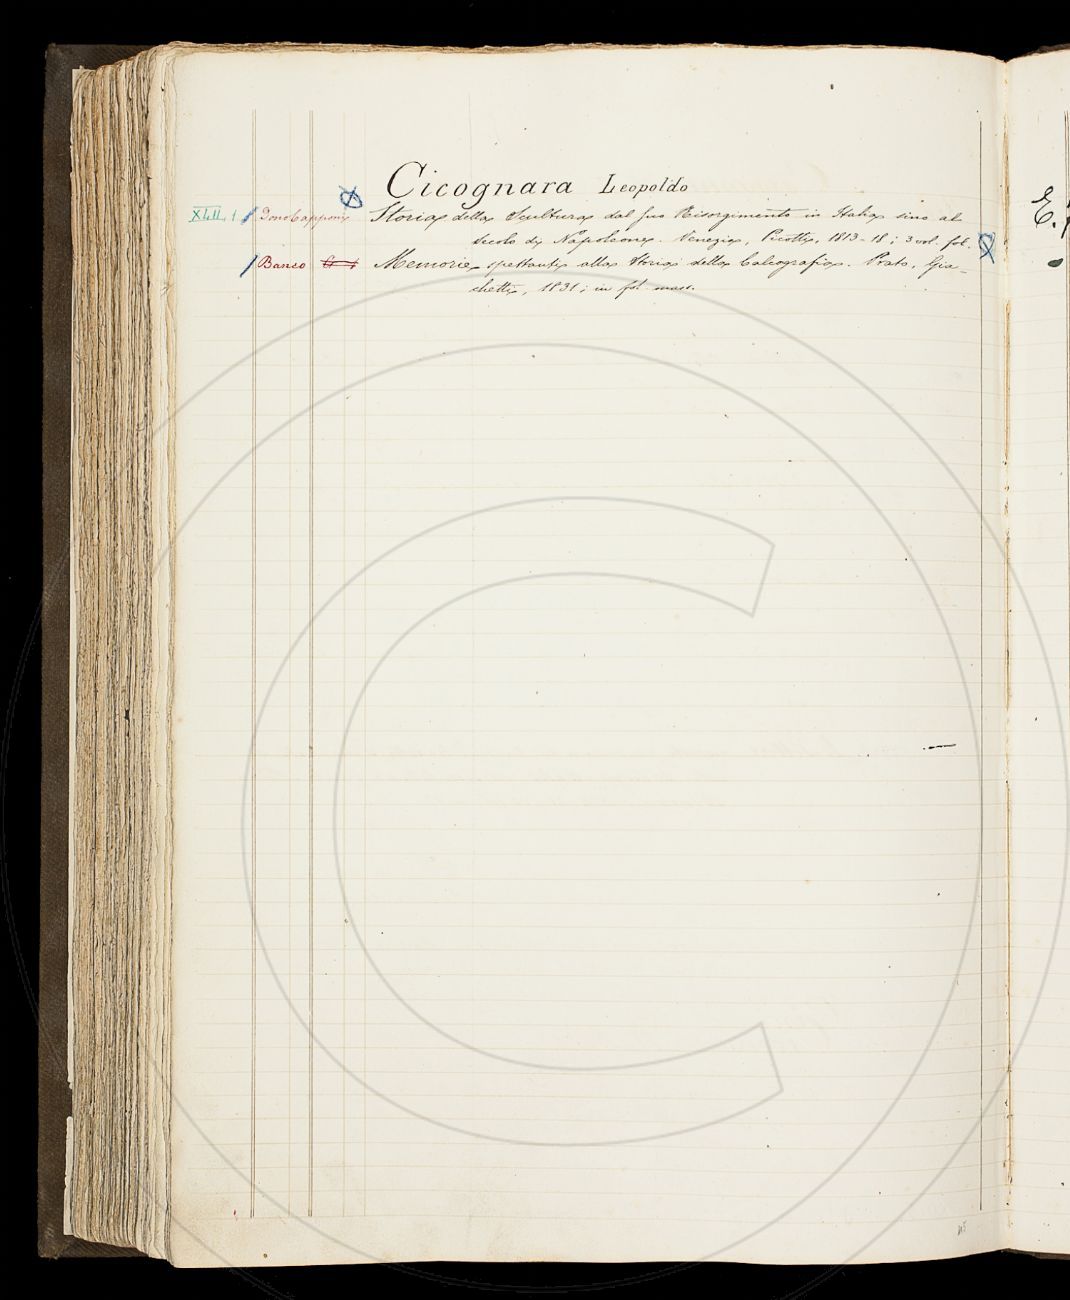 Cicognara Leopoldo
XLII. 1 Dono Capponi Storia della Scultura dal suo Risorgimento in Italia sino al
secolo di Napoleone. Venezia, Picotti, 1813-18; 3 vol. fol.
Banco Memorie spettanti alla Storia della Calcografia. Prato, Gia-
chetti, 1831; in fol. mass.
E.